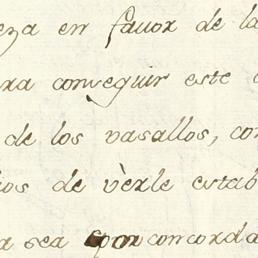 eza en favor de la
ra conseguir este
de los vasallos, con
ios de verle estab
a sea por concorda